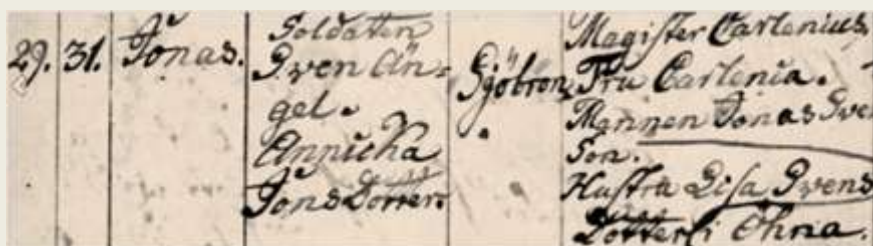 29. 31. Jonas.
Soldaten
Swen Än-
gel.
Annicka
Jons Dotter.
Sjöbron,
Magister Carlenius,
Fru Carlenia.
Mannen Jonas Swen
Son.
Hustru Lisa Swens
Dotter i Öhna.